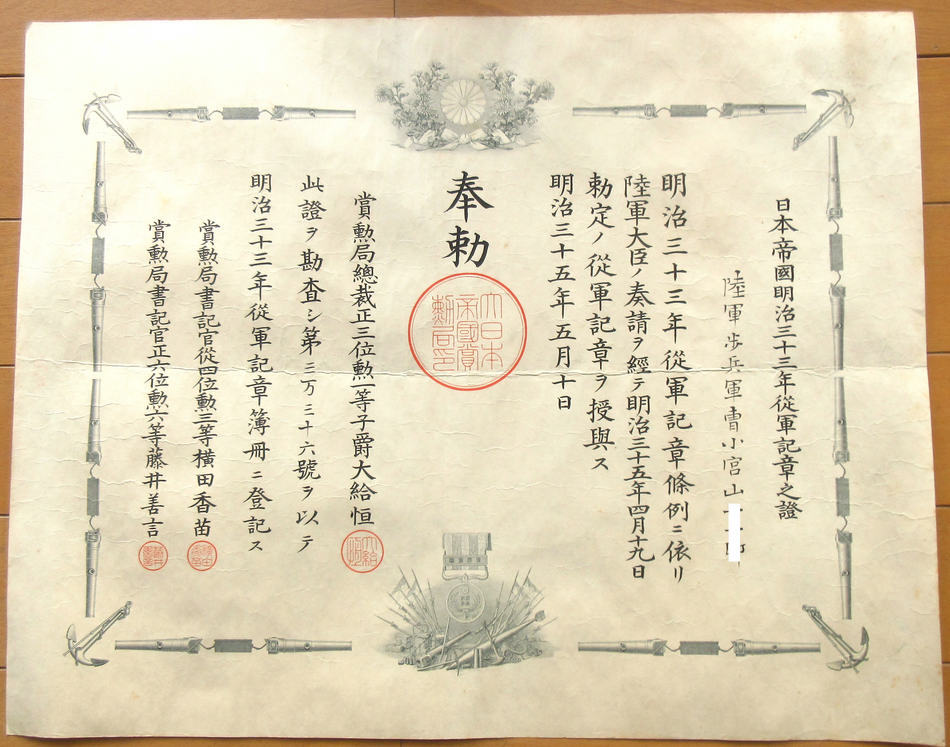 日本帝國明治三十三年從軍記章之證
陸軍歩兵軍曹小宮山
明治三十三年從軍記章條例ニ依リ
陸軍大臣ノ奏請ヲ經テ明治三十五年四月十九日
勅定ノ從軍記章ヲ授與ス
明治三十五年五月十日
奉勅
大日本帝國賞勲局印
賞勲局總裁正三位勲一等子爵大給恒
此證ヲ勘査シ第三万三十六號ヲ以テ
明治三十三年從軍記章簿冊ニ登記ス
賞勲局書記官從四位勲三等横田香苗
賞勲局書記官正六位勲六等藤井善言